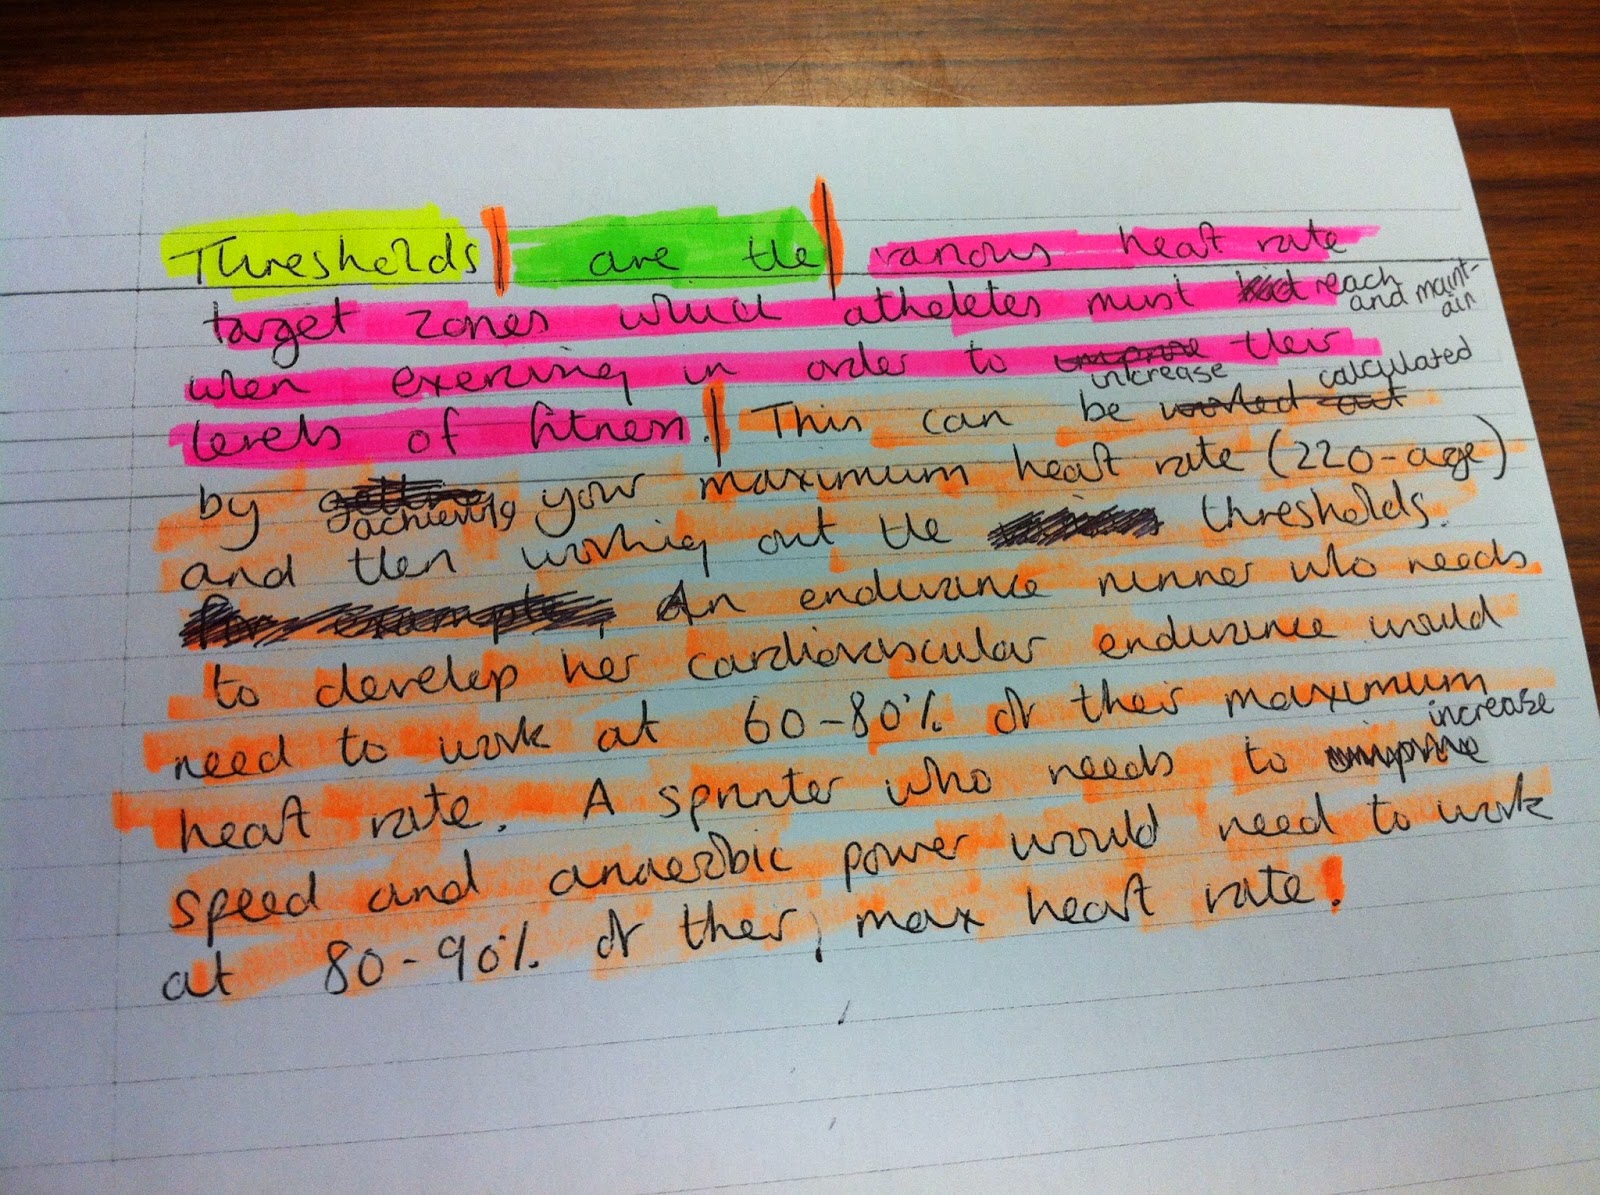 Thresholds are the various heart rate
target zones which atheletes must hit reach and maint-ain
when exercising in order to improve increase their
levels of fitness. This can be worked out calculated
by getting achieving your maximum heart rate (220-age)
and then working out the thresholds.
For example, An endurance runner who needs
to develop her cardiovascular endurance would
need to work at 60-80% of their maximum
heart rate. A sprinter who needs to improve increase
speed and anaerobic power would need to work
at 80-90% of their, max heart rate.